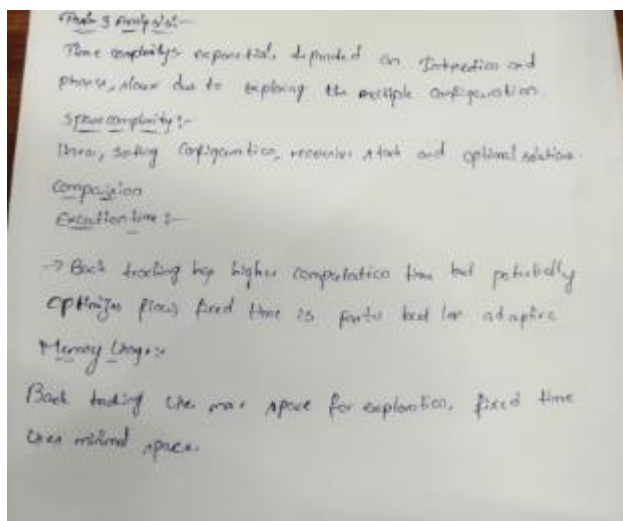 3 Analysis:-
Time complexity: exponential, depended on Intersection and
phases, slower due to exploring the multiple configuration.
Space complexity:-
linear, storing configuration, recursive stack and optimal solutions
Comparision
Excution time:-
→ Back tracking has higher computation time but potentially
optimizes flow, fixed time is faster but less adaptive
Memory Usage:-
Back tracking uses more space for exploration, fixed time
uses minimal space.